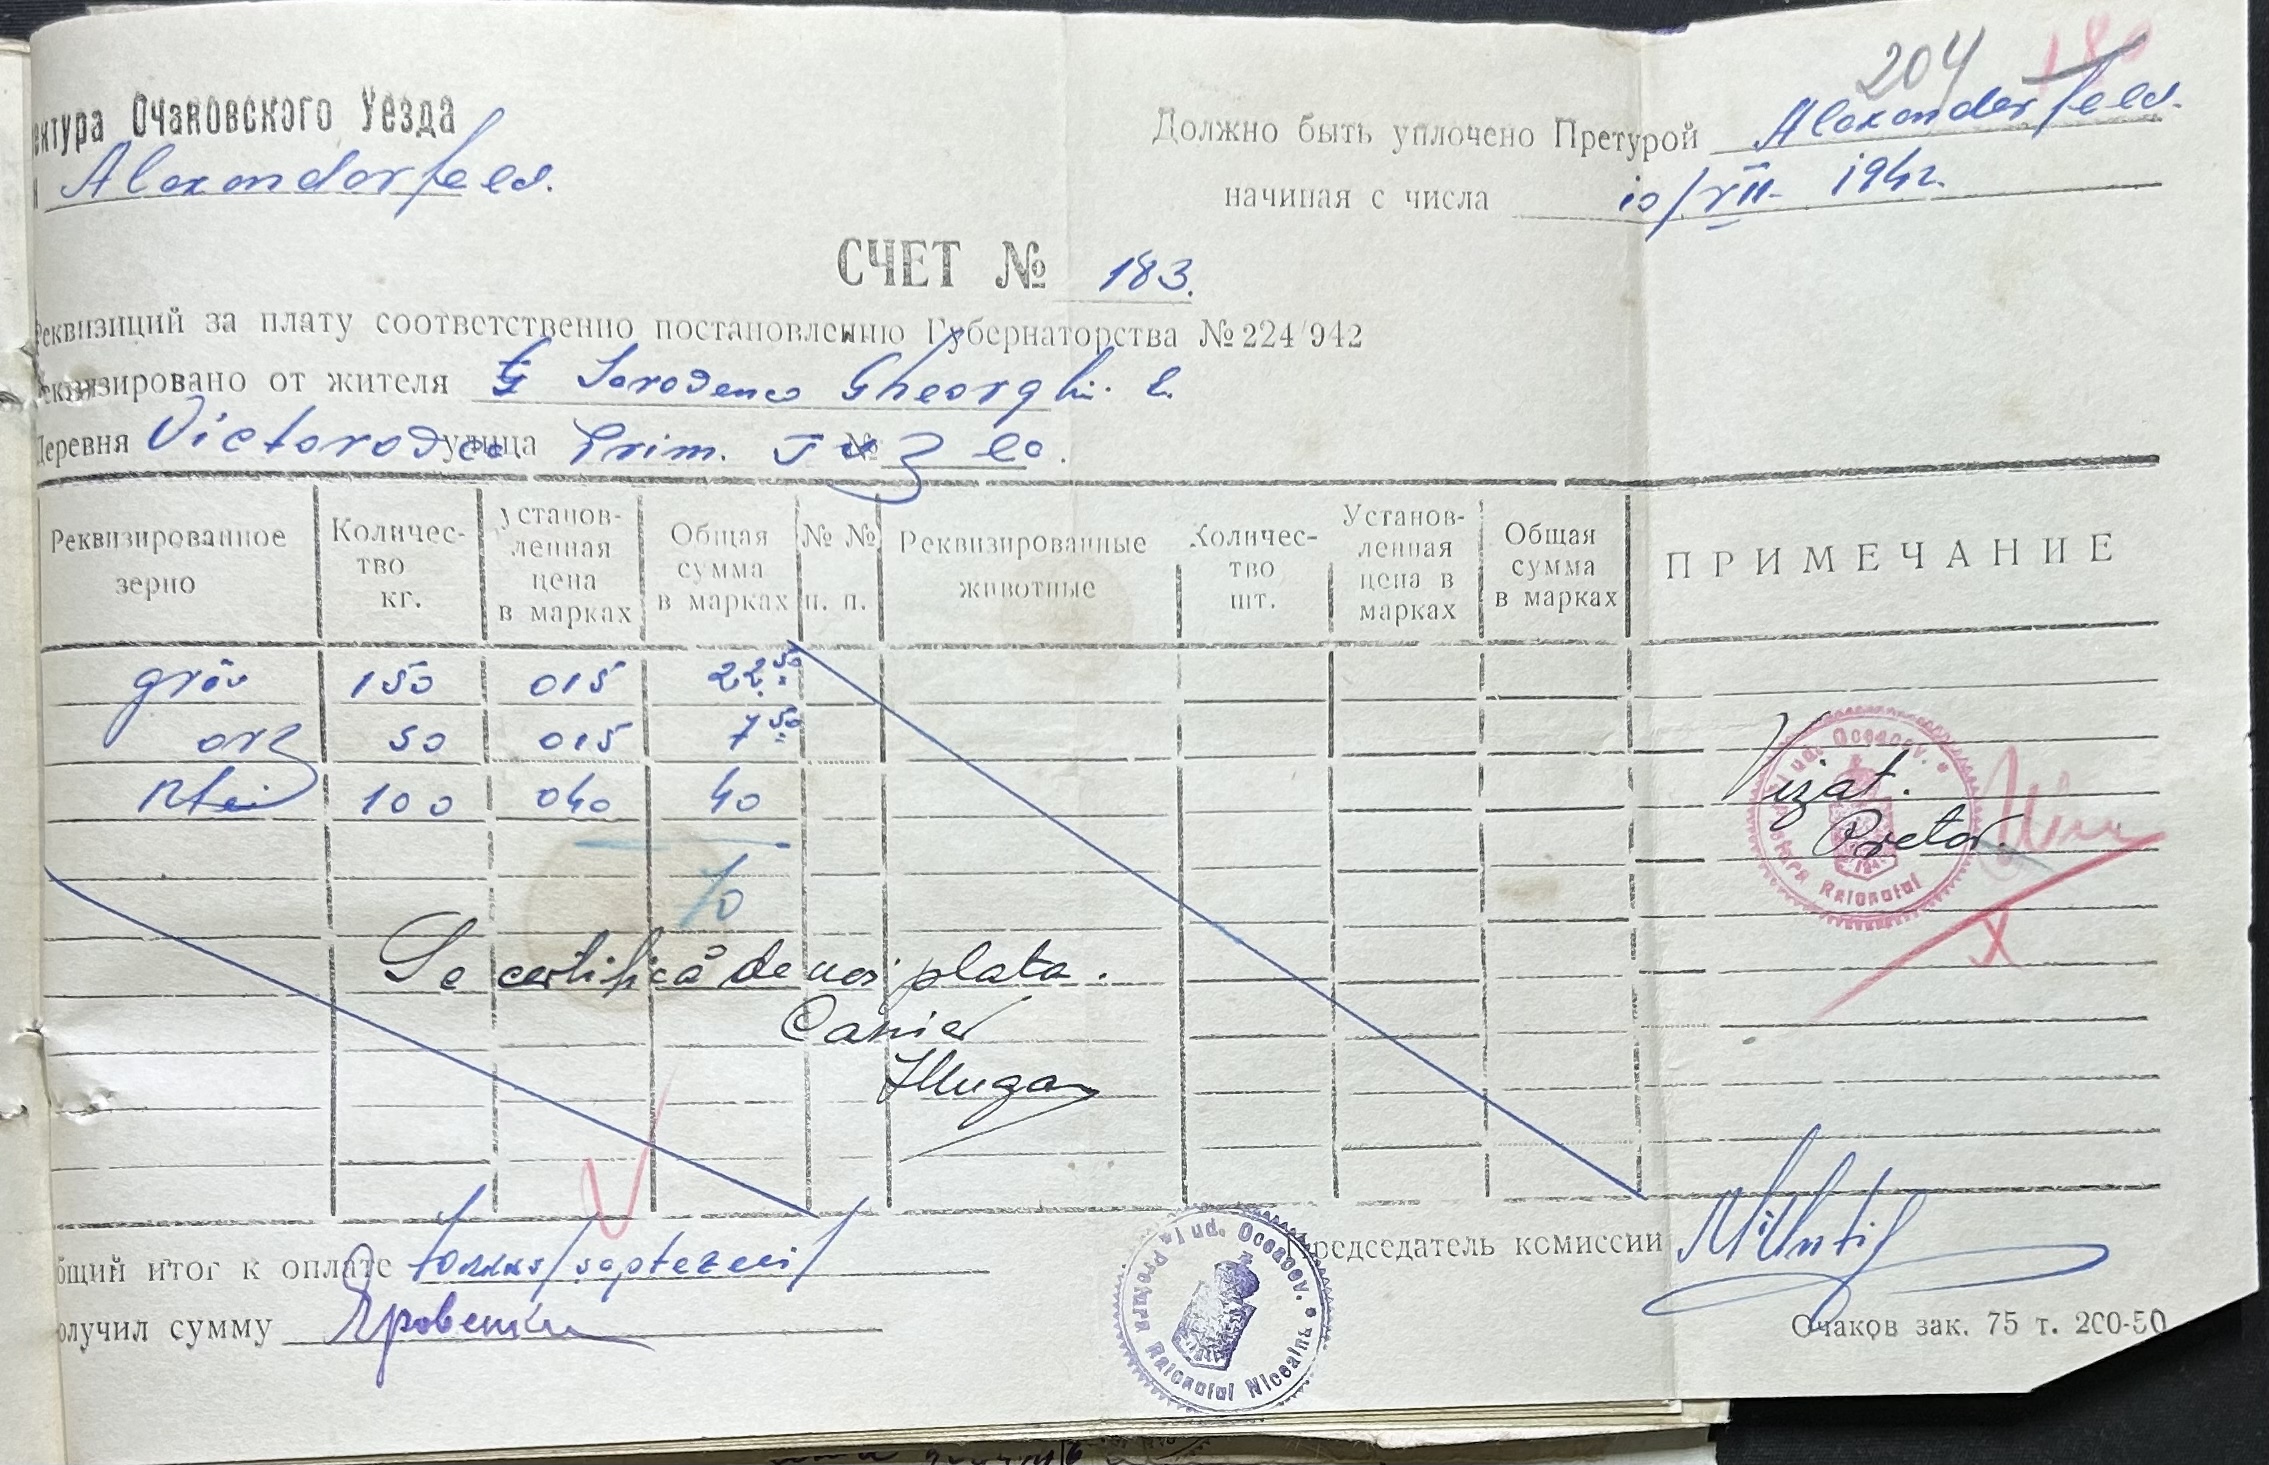 204
ектура Очаковского Уезда
Alexandorfeld.
Должно быть уплочено Претурой Alexandorfeld.
начиная с числа 10/VII- 1942.
СЧЕТ № 183.
Реквизиций за плату соответственно постановлению Губернаторства № 224/942
Реквизировано от жителя Gheorghi
Деревня улица Prim. №
Реквизированное зерно
Количество кг.
Установленная цена в марках
Общая сумма в марках
№ № п. п.
Реквизированные животные
Количество шт.
Установленная цена в марках
Общая сумма в марках
ПРИМЕЧАНИЕ
grâu 150 015 22.50
orz 50 015 7.50
100 040 40
70
Vizat.
Pretor
Se certifică de noi plata.
Casier
Общий итог к оплате septezeci
Получил сумму
Председатель комиссии
Pretura Raionului Niceaina Jud. Oceacov.
Очаков зак. 75 т. 200-50